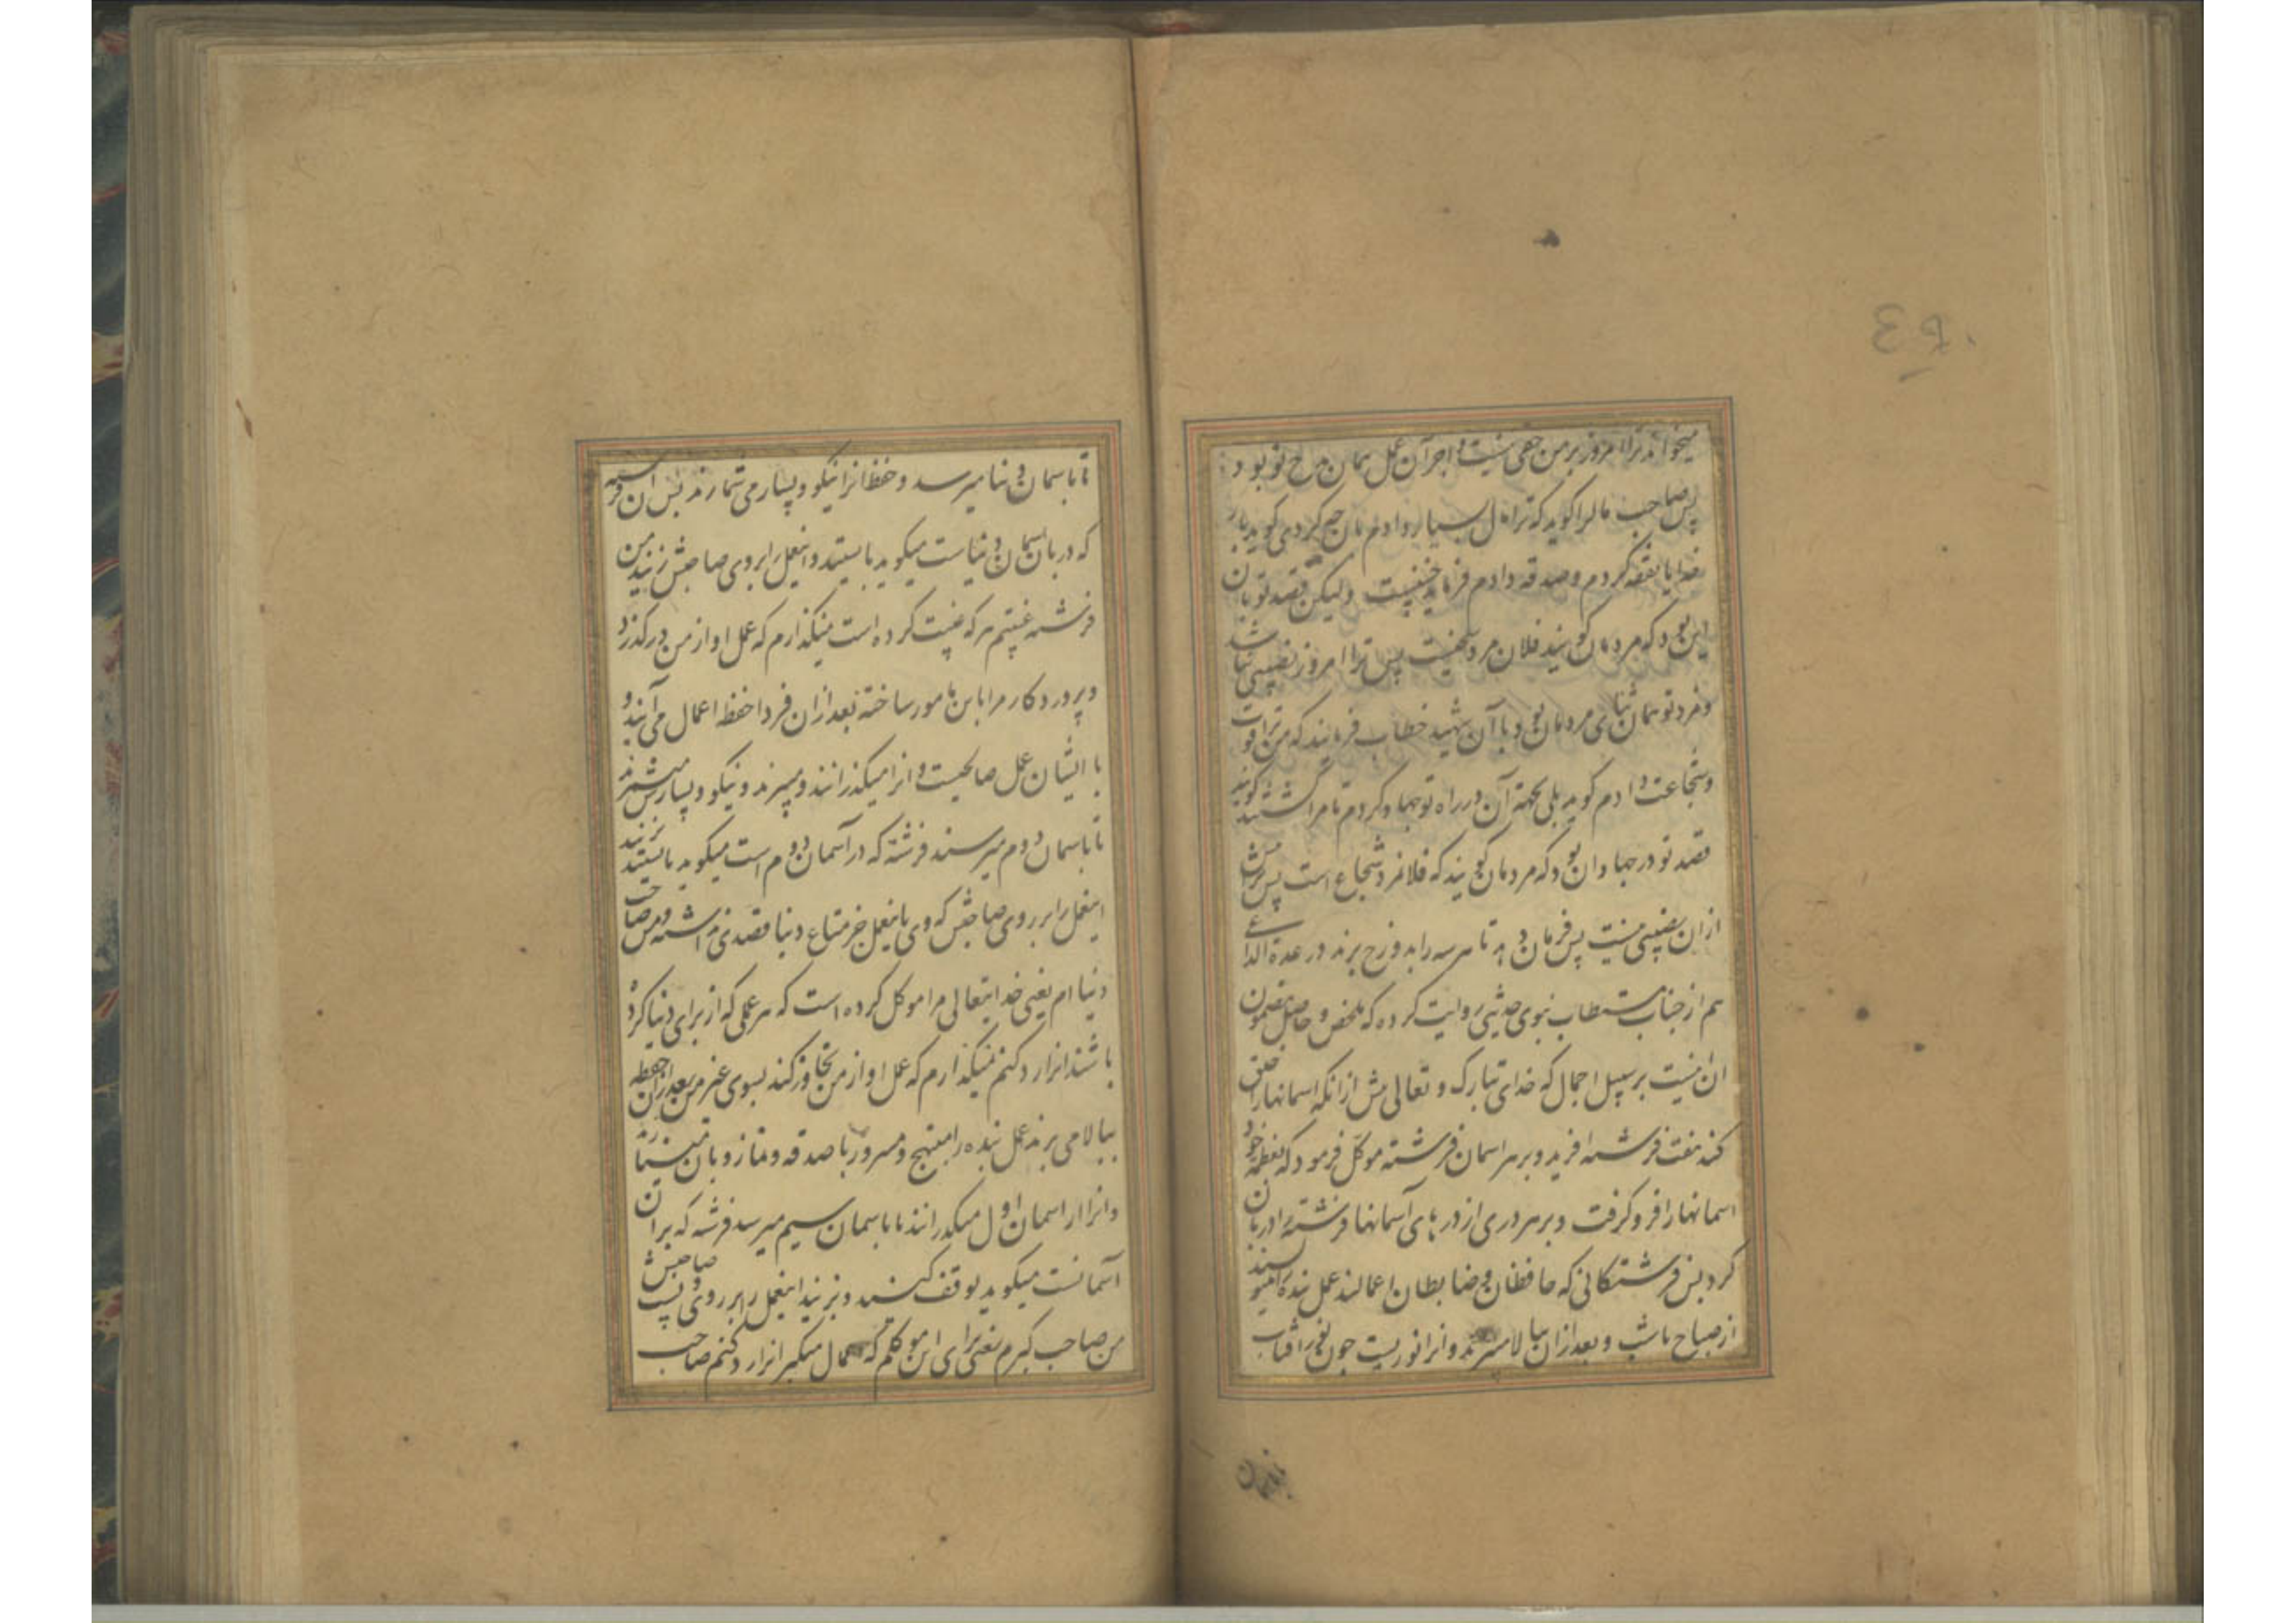 ۴۹۰
میخواند ترا امروز بر من حقی نیست و اجر آن عمل همان مدح تو بود
پس صاحب مال را گوید که ترا مال بسیار دادم بان چه کردی گوید بار
خدایا نفقه کردم و صدقه دادم فرماید چنین نیست ولیکن قصد تو بان
این بود که مردمان گویند فلان مرد سخیست پس ترا امروز نصیبی نباشد
و مزد تو همان ثنای مردمان بود با آن شهید خطاب فرمایند که من ترا قوت
و شجاعت دادم گوید بلی بجهة آن در راه تو جهاد کردم تا مرا کشتند گویند
قصد تو در جهاد ان بود که مردمان گویند که فلانمرد شجاع است پس
از ان نصیبی نیست پس فرمان دهد تا هر سه را بدوزخ برند در عدة الداعی
هم از جناب مستطاب نبوی حدیثی روایت کرده که ملخص و حاصل مضمون
ان اینست بر سبیل اجمال که خدای تبارک و تعالی پیش از انکه اسمانها را خلق
کند هفت فرشته افرید و بر هر اسمان فرشته موکل فرمود که بعظمة خود
اسمانها را فرو گرفت و بر هر دری از درهای آسمانها فرشته را دربان
کرد پس فرشتگانی که حافظان و ضابطان اعمالند عمل بنده را مینویسند
از صباح تا شب و بعد از ان ببالا میبرند و انرا نوریست چون نور افتاب
تا باسمان
تا باسمان دنیا میرسد و حفظه انرا نیکو و بسیار می شمارند پس ان فرشته
که دربان اسمان دنیاست میگوید بایستید و اینعمل را بر روی صاحبش زنید من
فرشته غیبتم هر که غیبت کرده است نمیگذارم که عمل او از من درگذرد
و پروردگار مرا باین مامور ساخته بعد از ان فردا حفظه اعمال می آیند و
با ایشان عمل صالحیست و انرا میگذرانند و میبرند و نیکو و بسیارش میشمرند
تا باسمان دوم میرسند فرشته که در آسمان دوم است میگوید بایستید بزنید
اینعمل را بر روی صاحبش که وی باینعمل جز متاع دنیا قصدی نداشته و من صاحب
دنیا ام یعنی خدایتعالی مرا موکل کرده است که هر عملی که از برای دنیا کرده
باشند انرا رد کنم نمیگذارم که عمل او از من تجاوز کند بسوی غیر من بعد از ان حفظه
ببالا می برند عمل بنده را مبتهج و مسرور با صدقه و نماز و بان
و انرا از اسمان اول میگذرانند تا باسمان سیم میرسد فرشته که بر ان
آسمانست میگوید توقف کنید و بزنید اینعمل را بر روی و پشت صاحبش
من صاحب کبرم یعنی برای این موکلم که اعمال متکبر انرا رد کنم صاحب